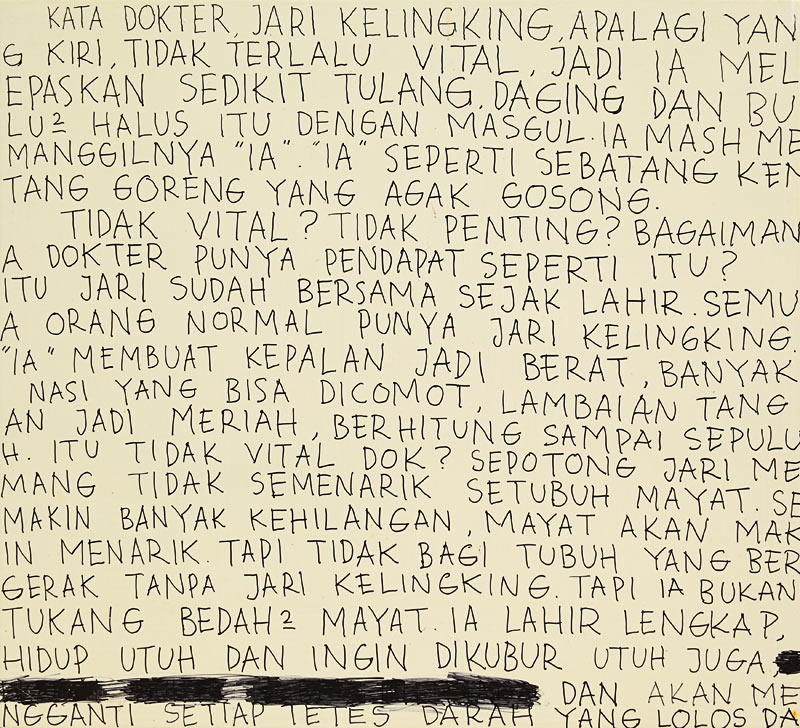 KATA DOKTER, JARI KELINGKING, APALAGI YAN
G KIRI, TIDAK TERLALU VITAL, JADI IA MEL
EPASKAN SEDIKIT TULANG, DAGING DAN BU
LU2 HALUS ITU DENGAN MASGUL. IA MASH ME
MANGGILNYA "IA". "IA" SEPERTI SEBATANG KEN
TANG GORENG YANG AGAK GOSONG.
TIDAK VITAL? TIDAK PENTING? BAGAIMAN
A DOKTER PUNYA PENDAPAT SEPERTI ITU?
ITU JARI SUDAH BERSAMA SEJAK LAHIR. SEMU
A ORANG NORMAL PUNYA JARI KELINGKING.
"IA" MEMBUAT KEPALAN JADI BERAT, BANYAK
NASI YANG BISA DICOMOT, LAMBAIAN TANG
AN JADI MERIAH, BERHITUNG SAMPAI SEPULU
H. ITU TIDAK VITAL DOK? SEPOTONG JARI ME
MANG TIDAK SEMENARIK SETUBUH MAYAT. SE
MAKIN BANYAK KEHILANGAN, MAYAT AKAN MAK
IN MENARIK. TAPI TIDAK BAGI TUBUH YANG BER
GERAK TANPA JARI KELINGKING. TAPI IA BUKAN
TUKANG BEDAH2 MAYAT. IA LAHIR LENGKAP,
HIDUP UTUH DAN INGIN DIKUBUR UTUH JUGA,
DAN AKAN ME
NGGANTI SETIAP TETES DARAH YANG LOLOS DA